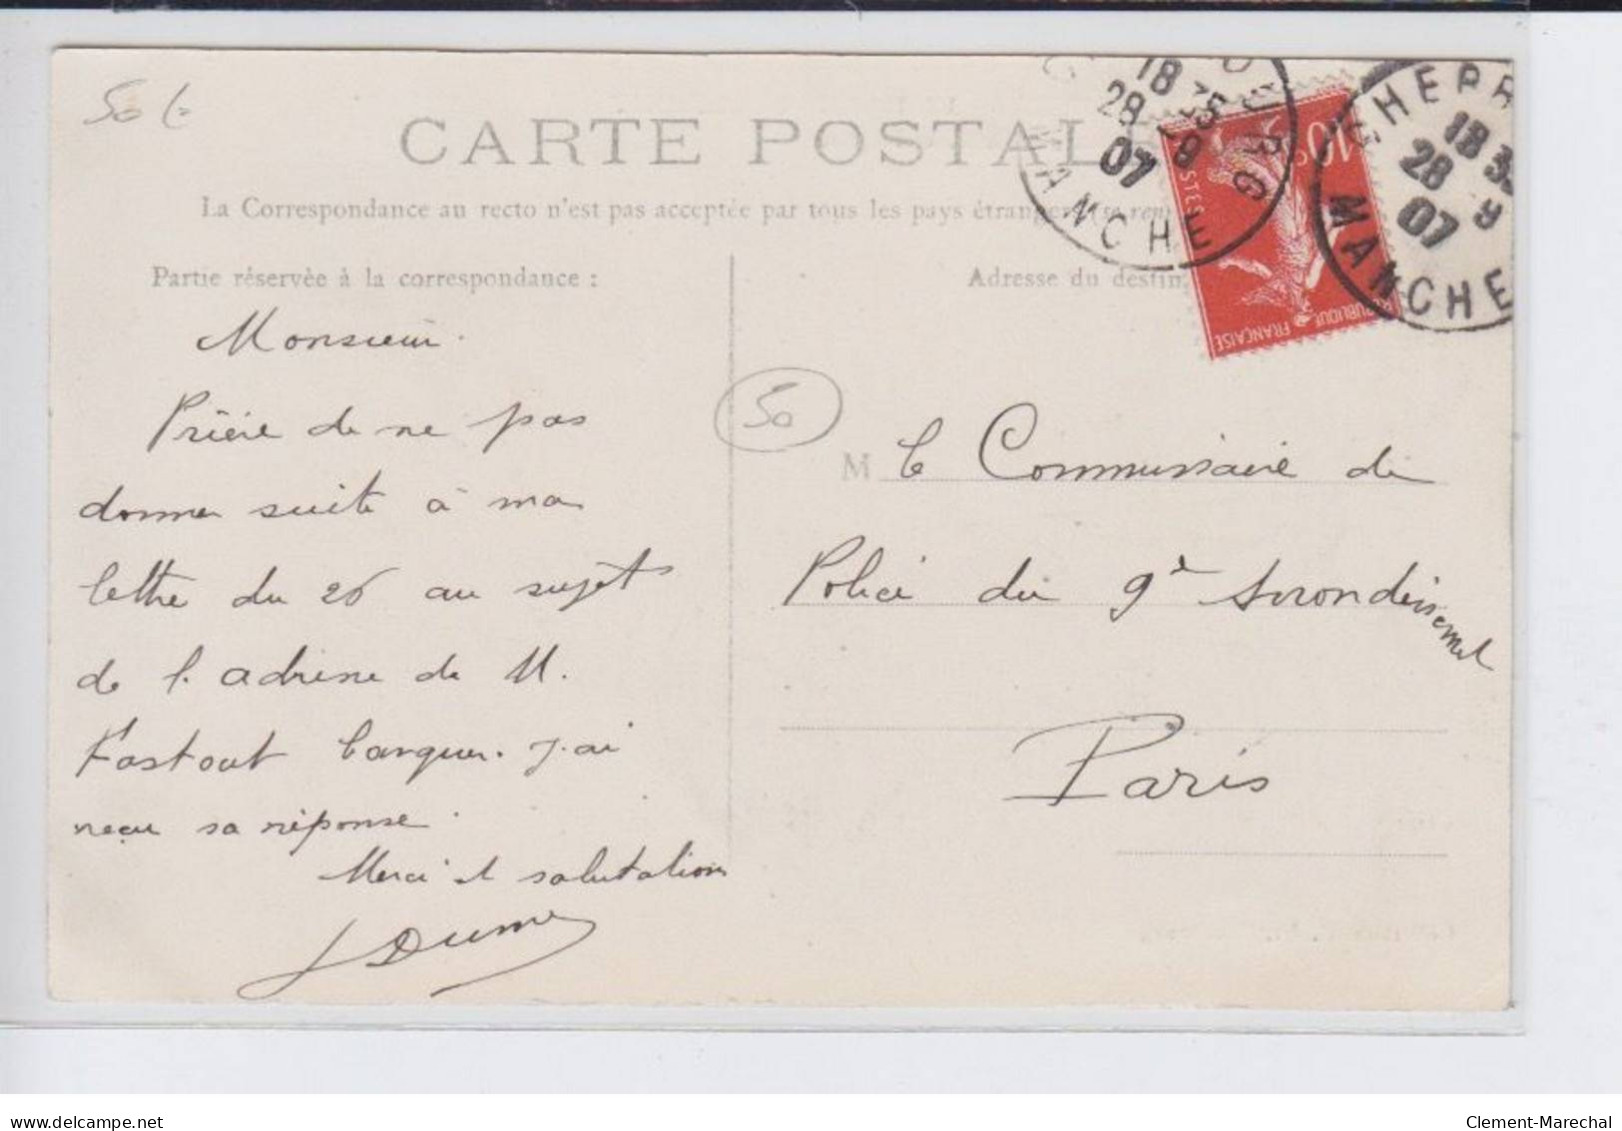 50 €
CARTE POSTALE
La Correspondance au recto n'est pas acceptée par tous les pays étrangers (se ren
Partie réservée à la correspondance :
Adresse du destin
CHERBOURG
18 35
28 9
07
MANCHE
CHERB
18 35
28 9
07
MANCHE
10 c
POSTES
REPUBLIQUE FRANÇAISE
50
Monsieur.
Prière de ne pas
donner suite à ma
lettre du 26 au sujet
de l'adresse de M.
Fastout banquier. J'ai
reçu sa réponse.
Merci et salutations
M le Commissaire de
Police du 9e Arrondissement
Paris
Clement-Marechal